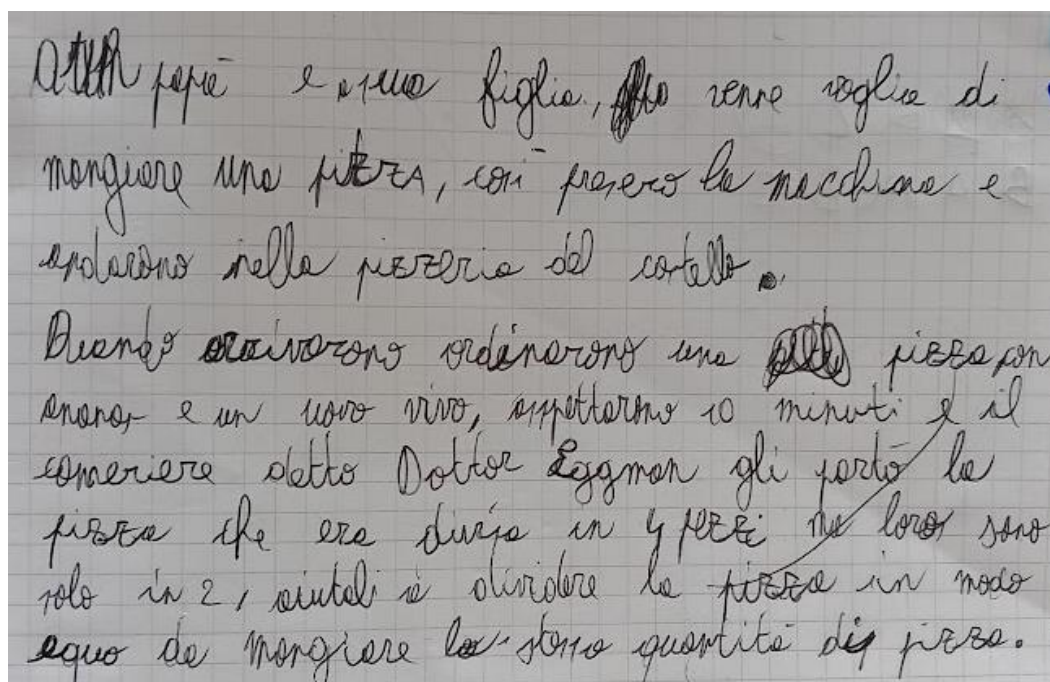 A papà e a sua figlia, venne voglia di
mangiare una pizza, così presero la macchina e
andarono nella pizzeria del castello.
Quando arrivarono ordinarono una pizza con
ananas e un uovo vivo, aspettarono 10 minuti e il
cameriere detto Dottor Eggman gli portò la
pizza che era divisa in 4 pezzi ma loro sono
solo in 2, aiutali a dividere la pizza in modo
equo da mangiare la stessa quantità di pizza.